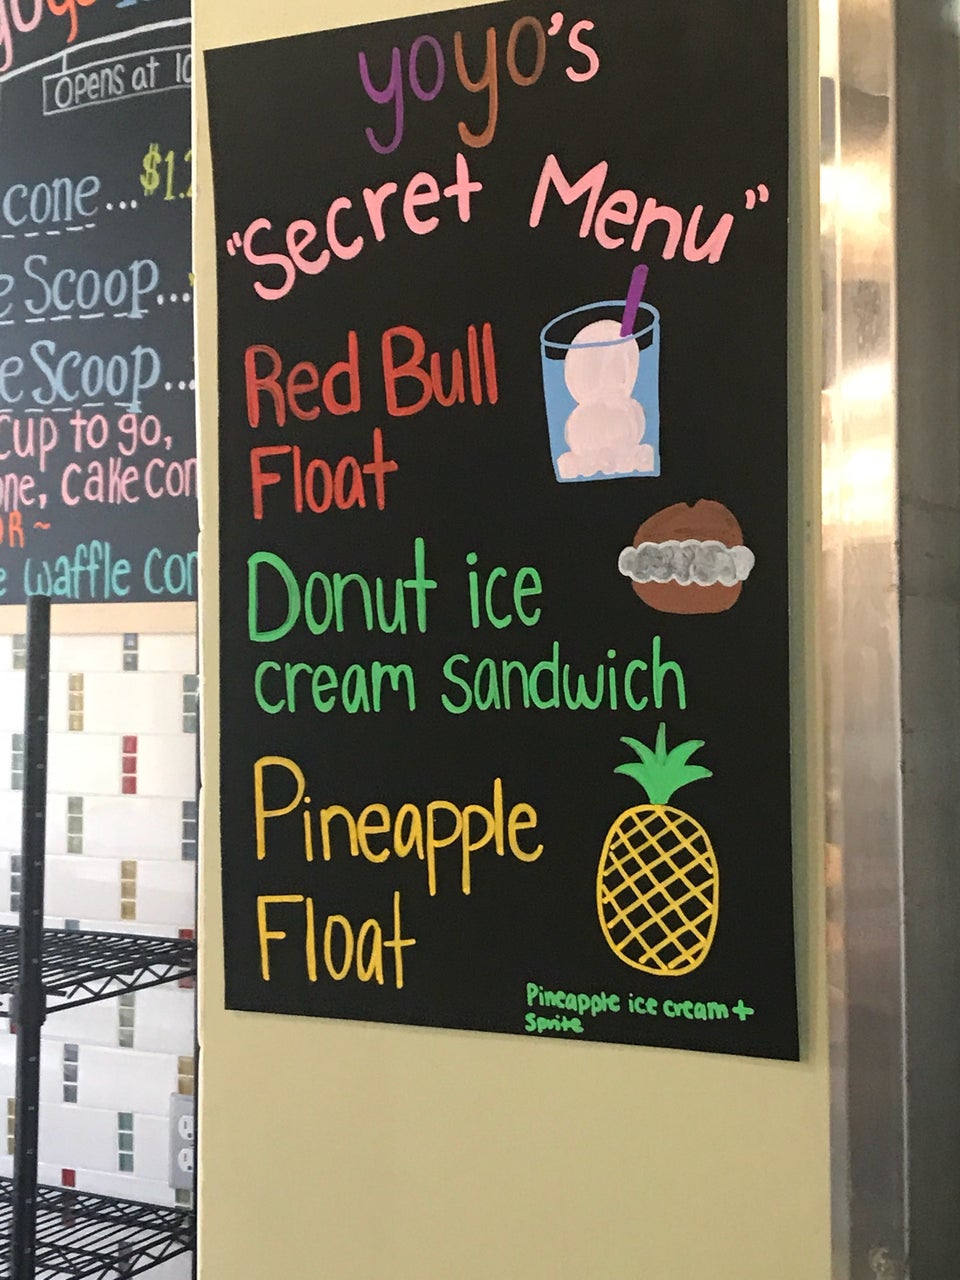 Opens at 10
cone...$1.2
Scoop...
Scoop...
cup to go,
cake con
waffle con
yoyo's
"Secret Menu"
Red Bull
Float
Donut ice
cream sandwich
Pineapple
Float
Pineapple ice cream +
Sprite